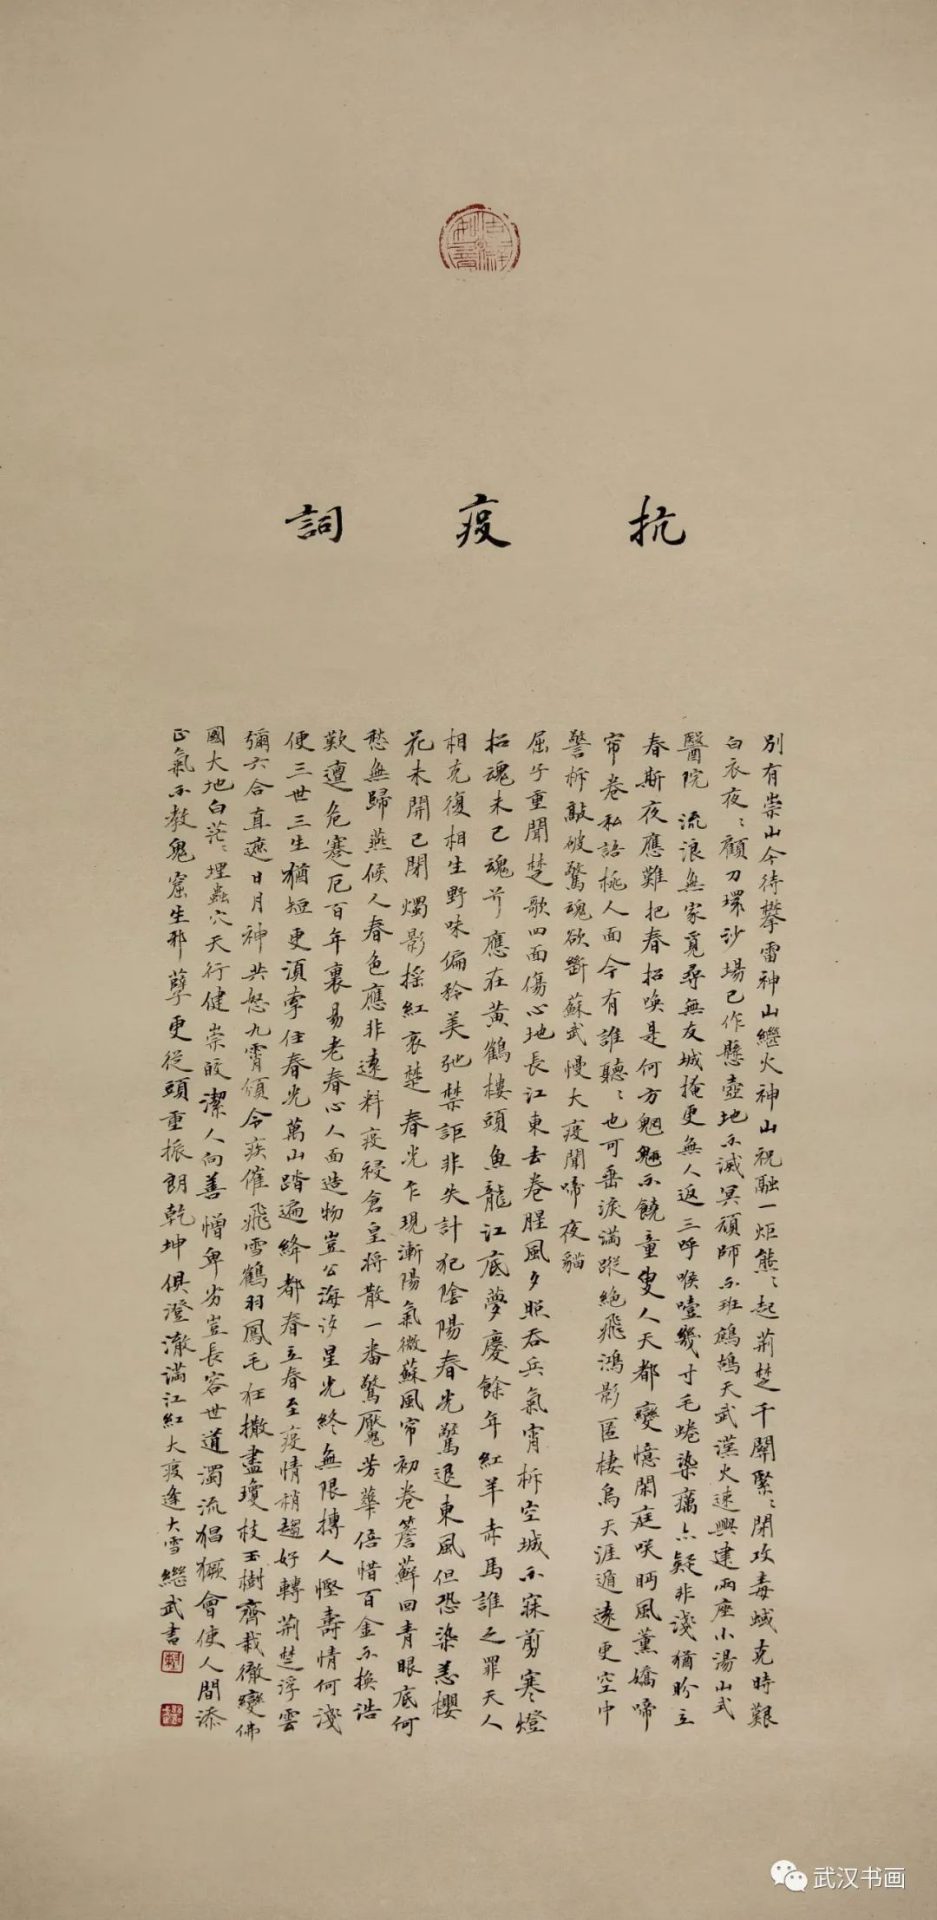 抗疫詞
別有崇山今待攀雷神山繼火神山祝融一炬熊〻起荊楚千關緊〻閉攻毒蜮克時艱
白衣夜〻顧刀環沙場已作懸壺地不滅冥頑師不班鷓鴣天武漢火速興建兩座小湯山式
醫院 流浪無家覓尋無友城掩更無人返三呼喉噎幾寸毛蜷染癘点疑非淺猶盼立
春斯夜應難把春招喚是何方魍魎不饒童叟人天都變憶閑庭咲眄風薰嬌啼
帘卷私語桃人面今有誰聽〻也可垂淚滿蹤絕飛鴻影匿棲烏天涯遁遠更空中
警柝敲破驚魂欲斷蘇武慢大疫聞啼夜貓
屈子重聞楚歌四面傷心地長江東去卷腥風夕照吞兵氣宵柝空城不寐剪寒燈
招魂未已魂兮應在黃鶴樓頭魚龍江底夢慶餘年紅羊赤馬誰之罪天人
相克復相生野味偏矜美弛禁詎非失計犯陰陽春光驚退東風但恐染恙櫻
花未開已閉燭影搖紅哀楚 春光乍現漸陽氣微蘇風帘初卷簷蘚回青眼底何
愁無歸燕候人春色應非遠料疫祲倉皇將散一番驚魘芳華倍惜百金不換浩
歎遭危蹇厄百年裏易老春心人面造物豈公海汐星光終無限摶人慳壽情何淺
便三世三生猶短更須牽住春光萬山踏遍絳都春立春至疫情稍趨好轉荊楚浮雲
彌六合直遮日月神共怒九霄傾令疾催飛雪鶴羽鳳毛狂撒盡瓊枝玉樹齊栽徹變佛
國大地白茫〻埋蟲穴天行健崇皎潔人向善憎卑劣豈長容世道濁流猖獗會使人間添
正氣不教鬼窟生邪孽更從頭重振朗乾坤俱澄澈滿江紅大疫逢大雪繼武書
武汉书画